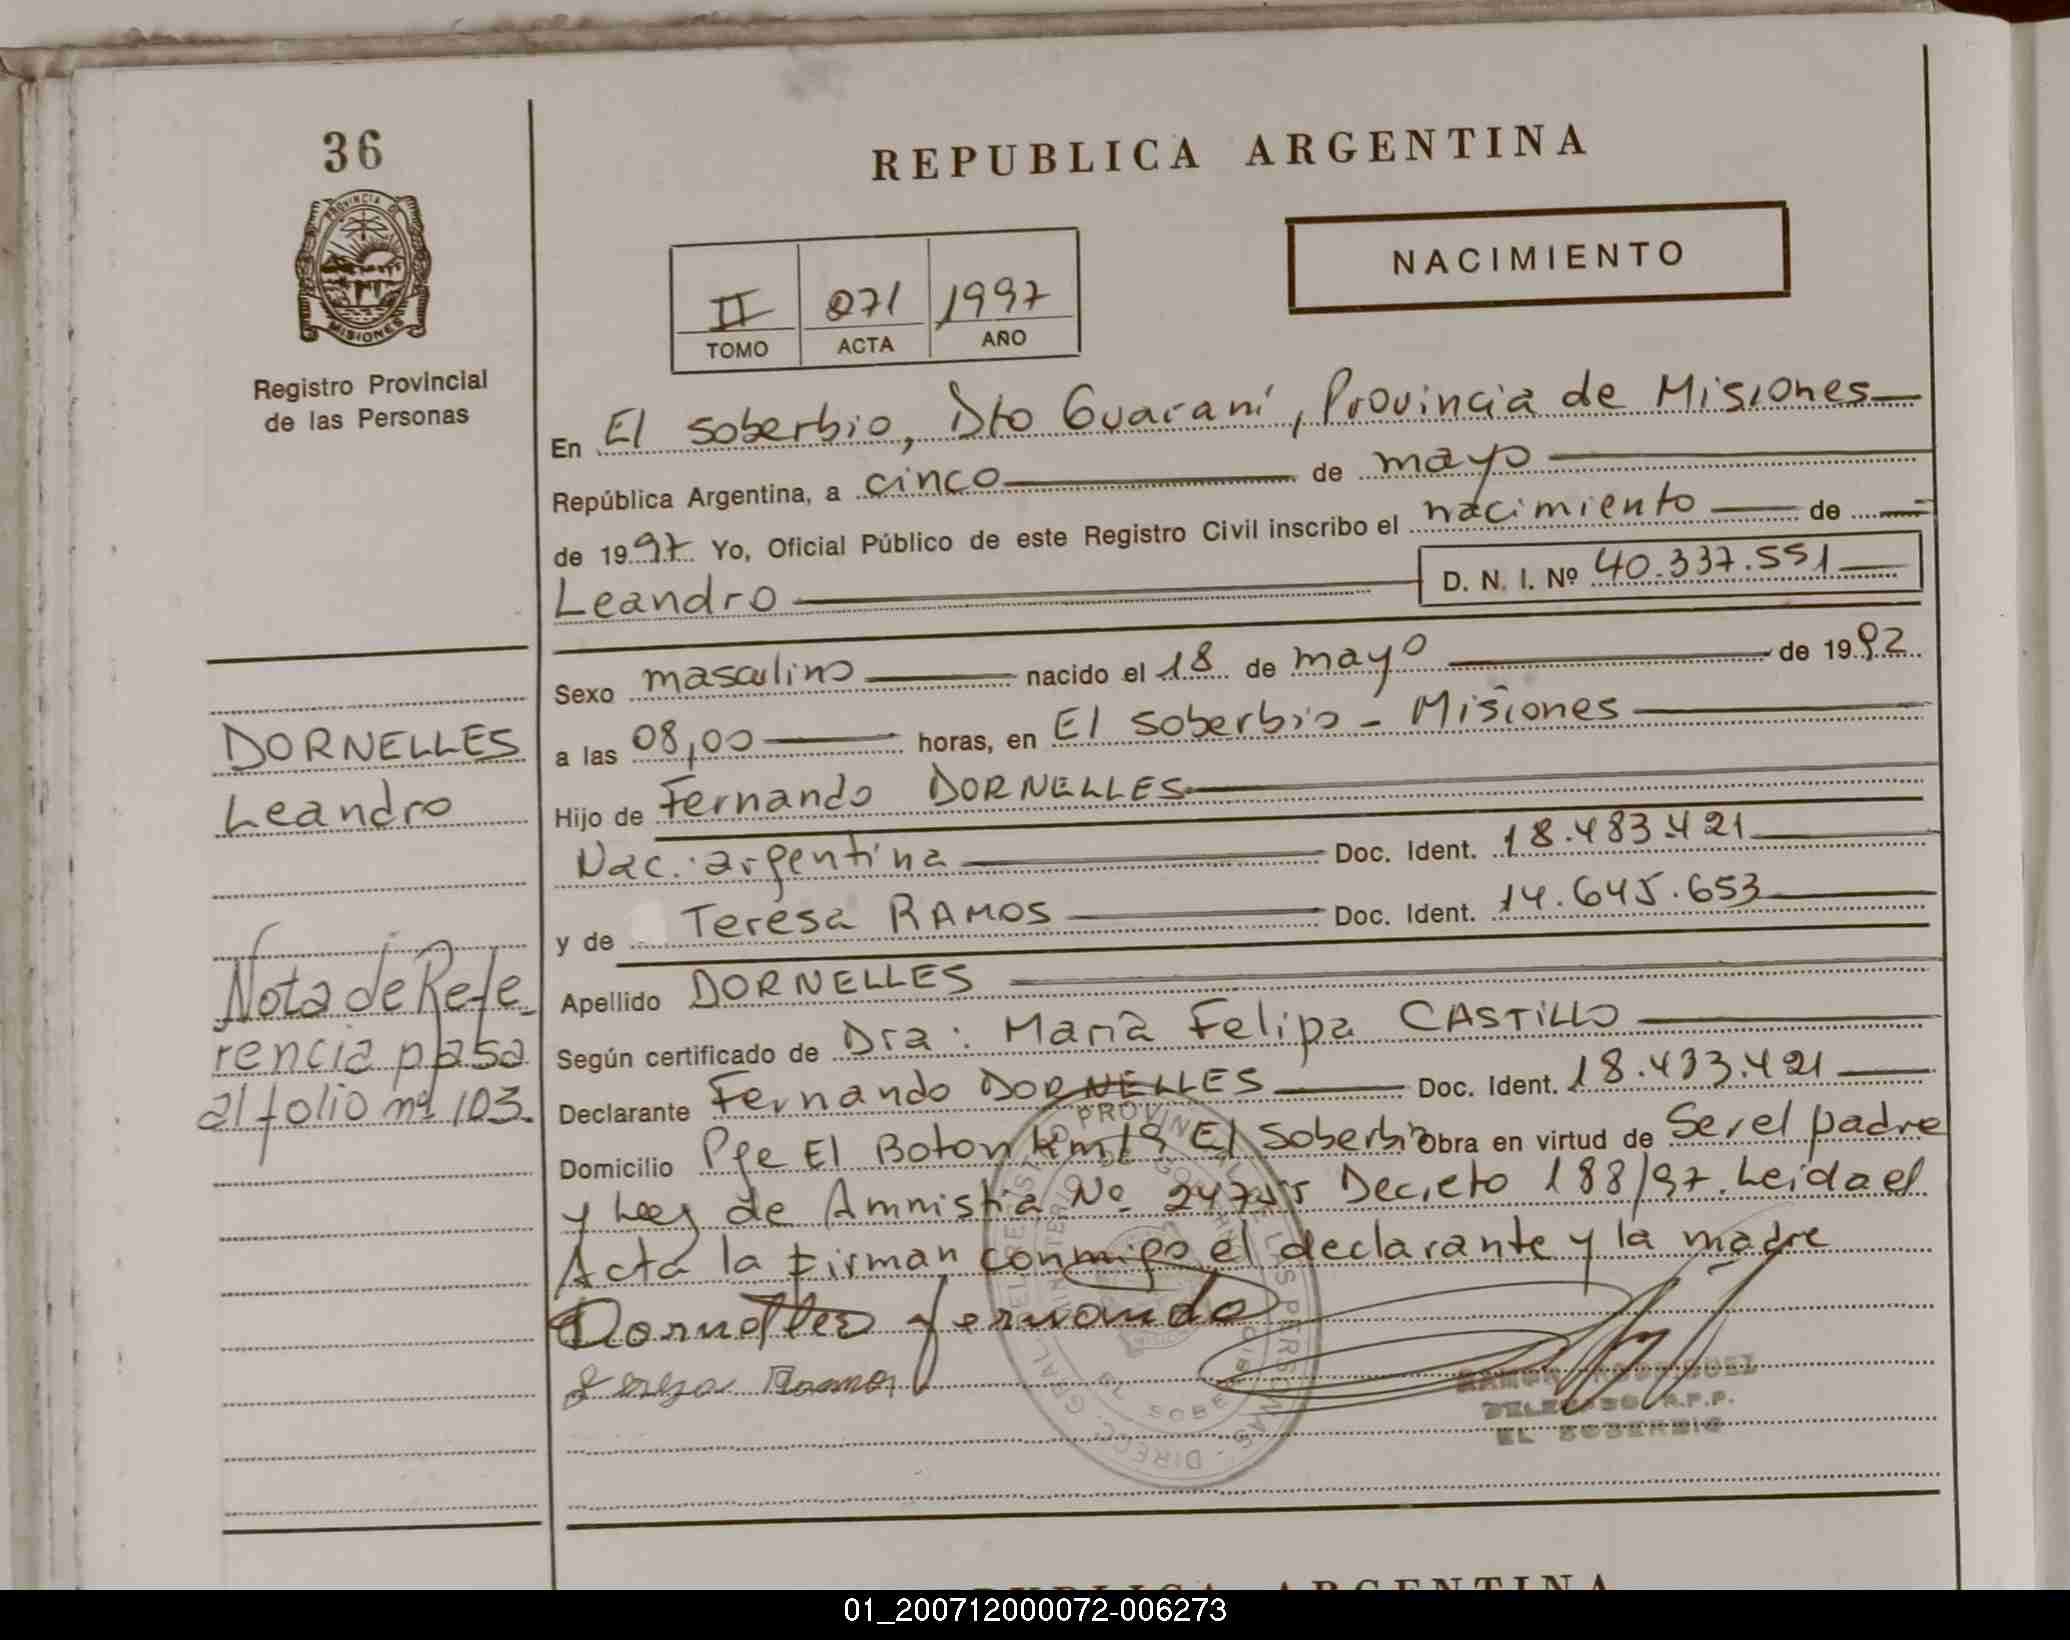 36
REPUBLICA ARGENTINA
NACIMIENTO
PROVINCIA DE
MISIONES
II 071 1997
TOMO ACTA AÑO
Registro Provincial
de las Personas
En El soberbio, Dto Guaraní, Provincia de Misiones
República Argentina, a cinco de mayo
de 1997 Yo, Oficial Público de este Registro Civil inscribo el nacimiento de
Leandro D. N. I. Nº 40.337.551
Sexo masculino nacido el 18 de mayo de 1992
a las 08,00 horas, en El soberbio - Misiones
Hijo de Fernando DORNELLES
Nac.: argentina Doc. Ident. 18.483.421
y de Teresa RAMOS Doc. Ident. 14.645.653
Apellido DORNELLES
Según certificado de Dra: María Felipa CASTILLO
Declarante Fernando DORNELLES Doc. Ident. 18.433.421
Domicilio Pje El Boton km 19 El Soberbio Obra en virtud de Ser el padre
y Ley de Amnistia Nº Decreto 188/97. Leida el
Acta la firman conmigo el declarante y la madre
Dornelles Fernando
Teresa Ramos
DELEGADO R.P.P.
EL SOBERBIO
DORNELLES
Leandro
Nota de Refe
rencia pasa
al folio nº 103.
REPUBLICA ARGENTINA
01_200712000072-006273